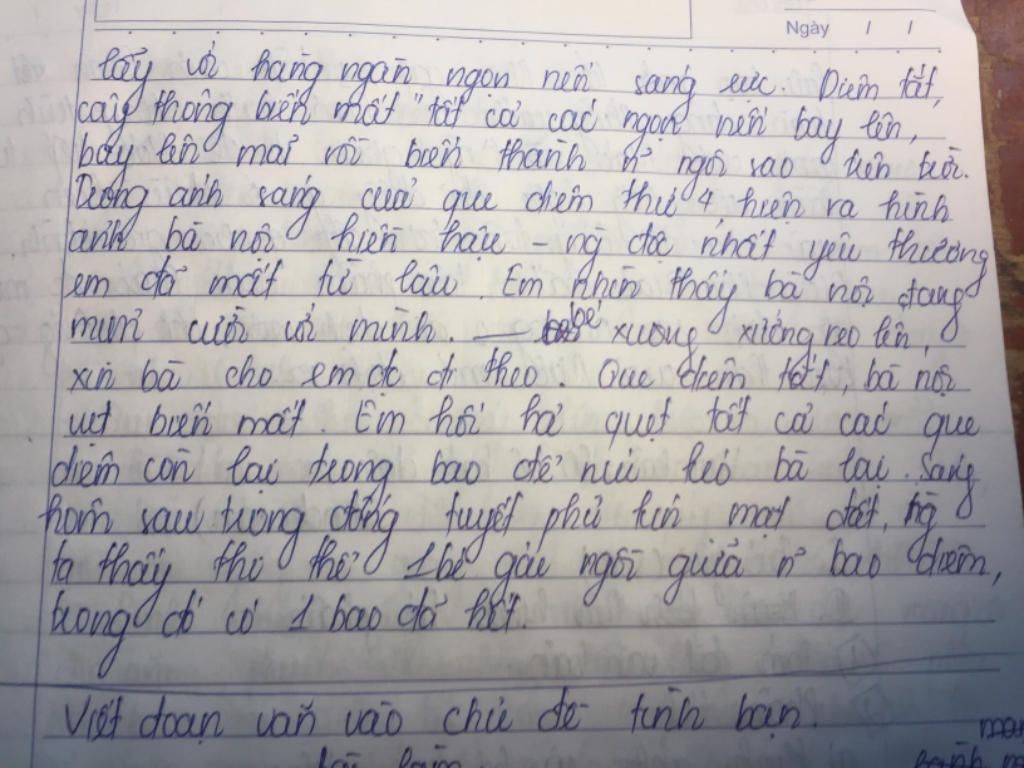 Ngày / /
lẫy với hàng ngàn ngọn nến sáng rực. Diêm tắt,
cây thông biến mất "tất cả các ngọn nến bay lên,
bay lên mãi rồi biến thành n~ ngôi sao trên trời.
Trong ánh sáng của que diêm thứ 4, hiện ra hình
ảnh bà nội hiền hậu – ng độc nhất yêu thương
em đã mất từ lâu. Em nhìn thấy bà nội đang
mỉm cười với mình. bé xuong xướng reo lên,
xin bà cho em đc đi theo. Que diêm tắt, bà nội
vụt biến mất. Em hối hả quẹt tất cả các que
diêm còn lại trong bao để níu kéo bà lại. Sáng
hôm sau trong đống tuyết phủ kín mặt đất, ng
ta thấy thi thể 1 bé gái ngồi giữa n~ bao diêm,
trong đó có 1 bao đã hết.
Viết đoạn văn vào chủ đề tình bạn.